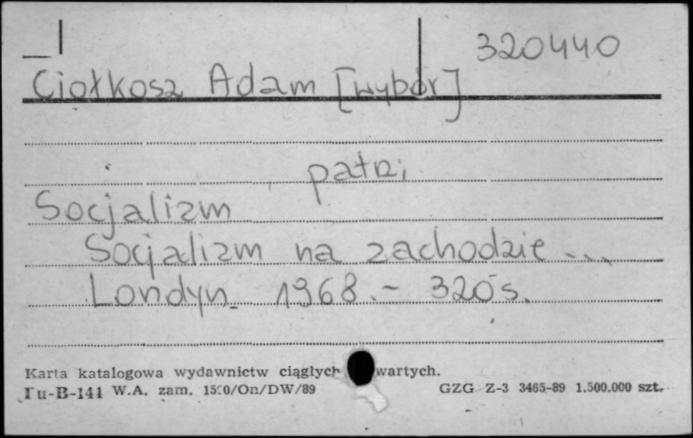 320440
Ciołkosz Adam [wybór]
patrz:
Socjalizm
Socjalizm na zachodzie ...
Londyn 1968.- 320 s.
Karta katalogowa wydawnictw ciągłych wartych.
Pu-B-141 W.A. zam. /On/DW/89 GZG Z-3 3465-89 1.500.000 szt.